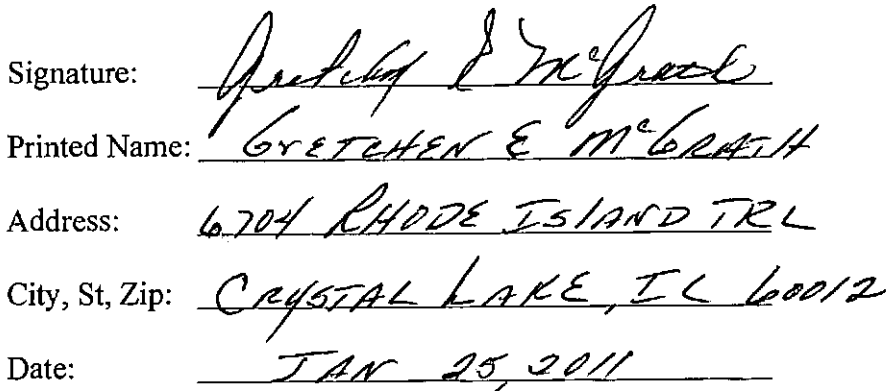 Signature: Gretchen E McGrath
Printed Name: GrETCHEN E McGRATH
Address: 6704 RHODE ISlAND TRL
City, St, Zip: CRYSTAL LAKE, IL 60012
Date: JAN 25, 2011